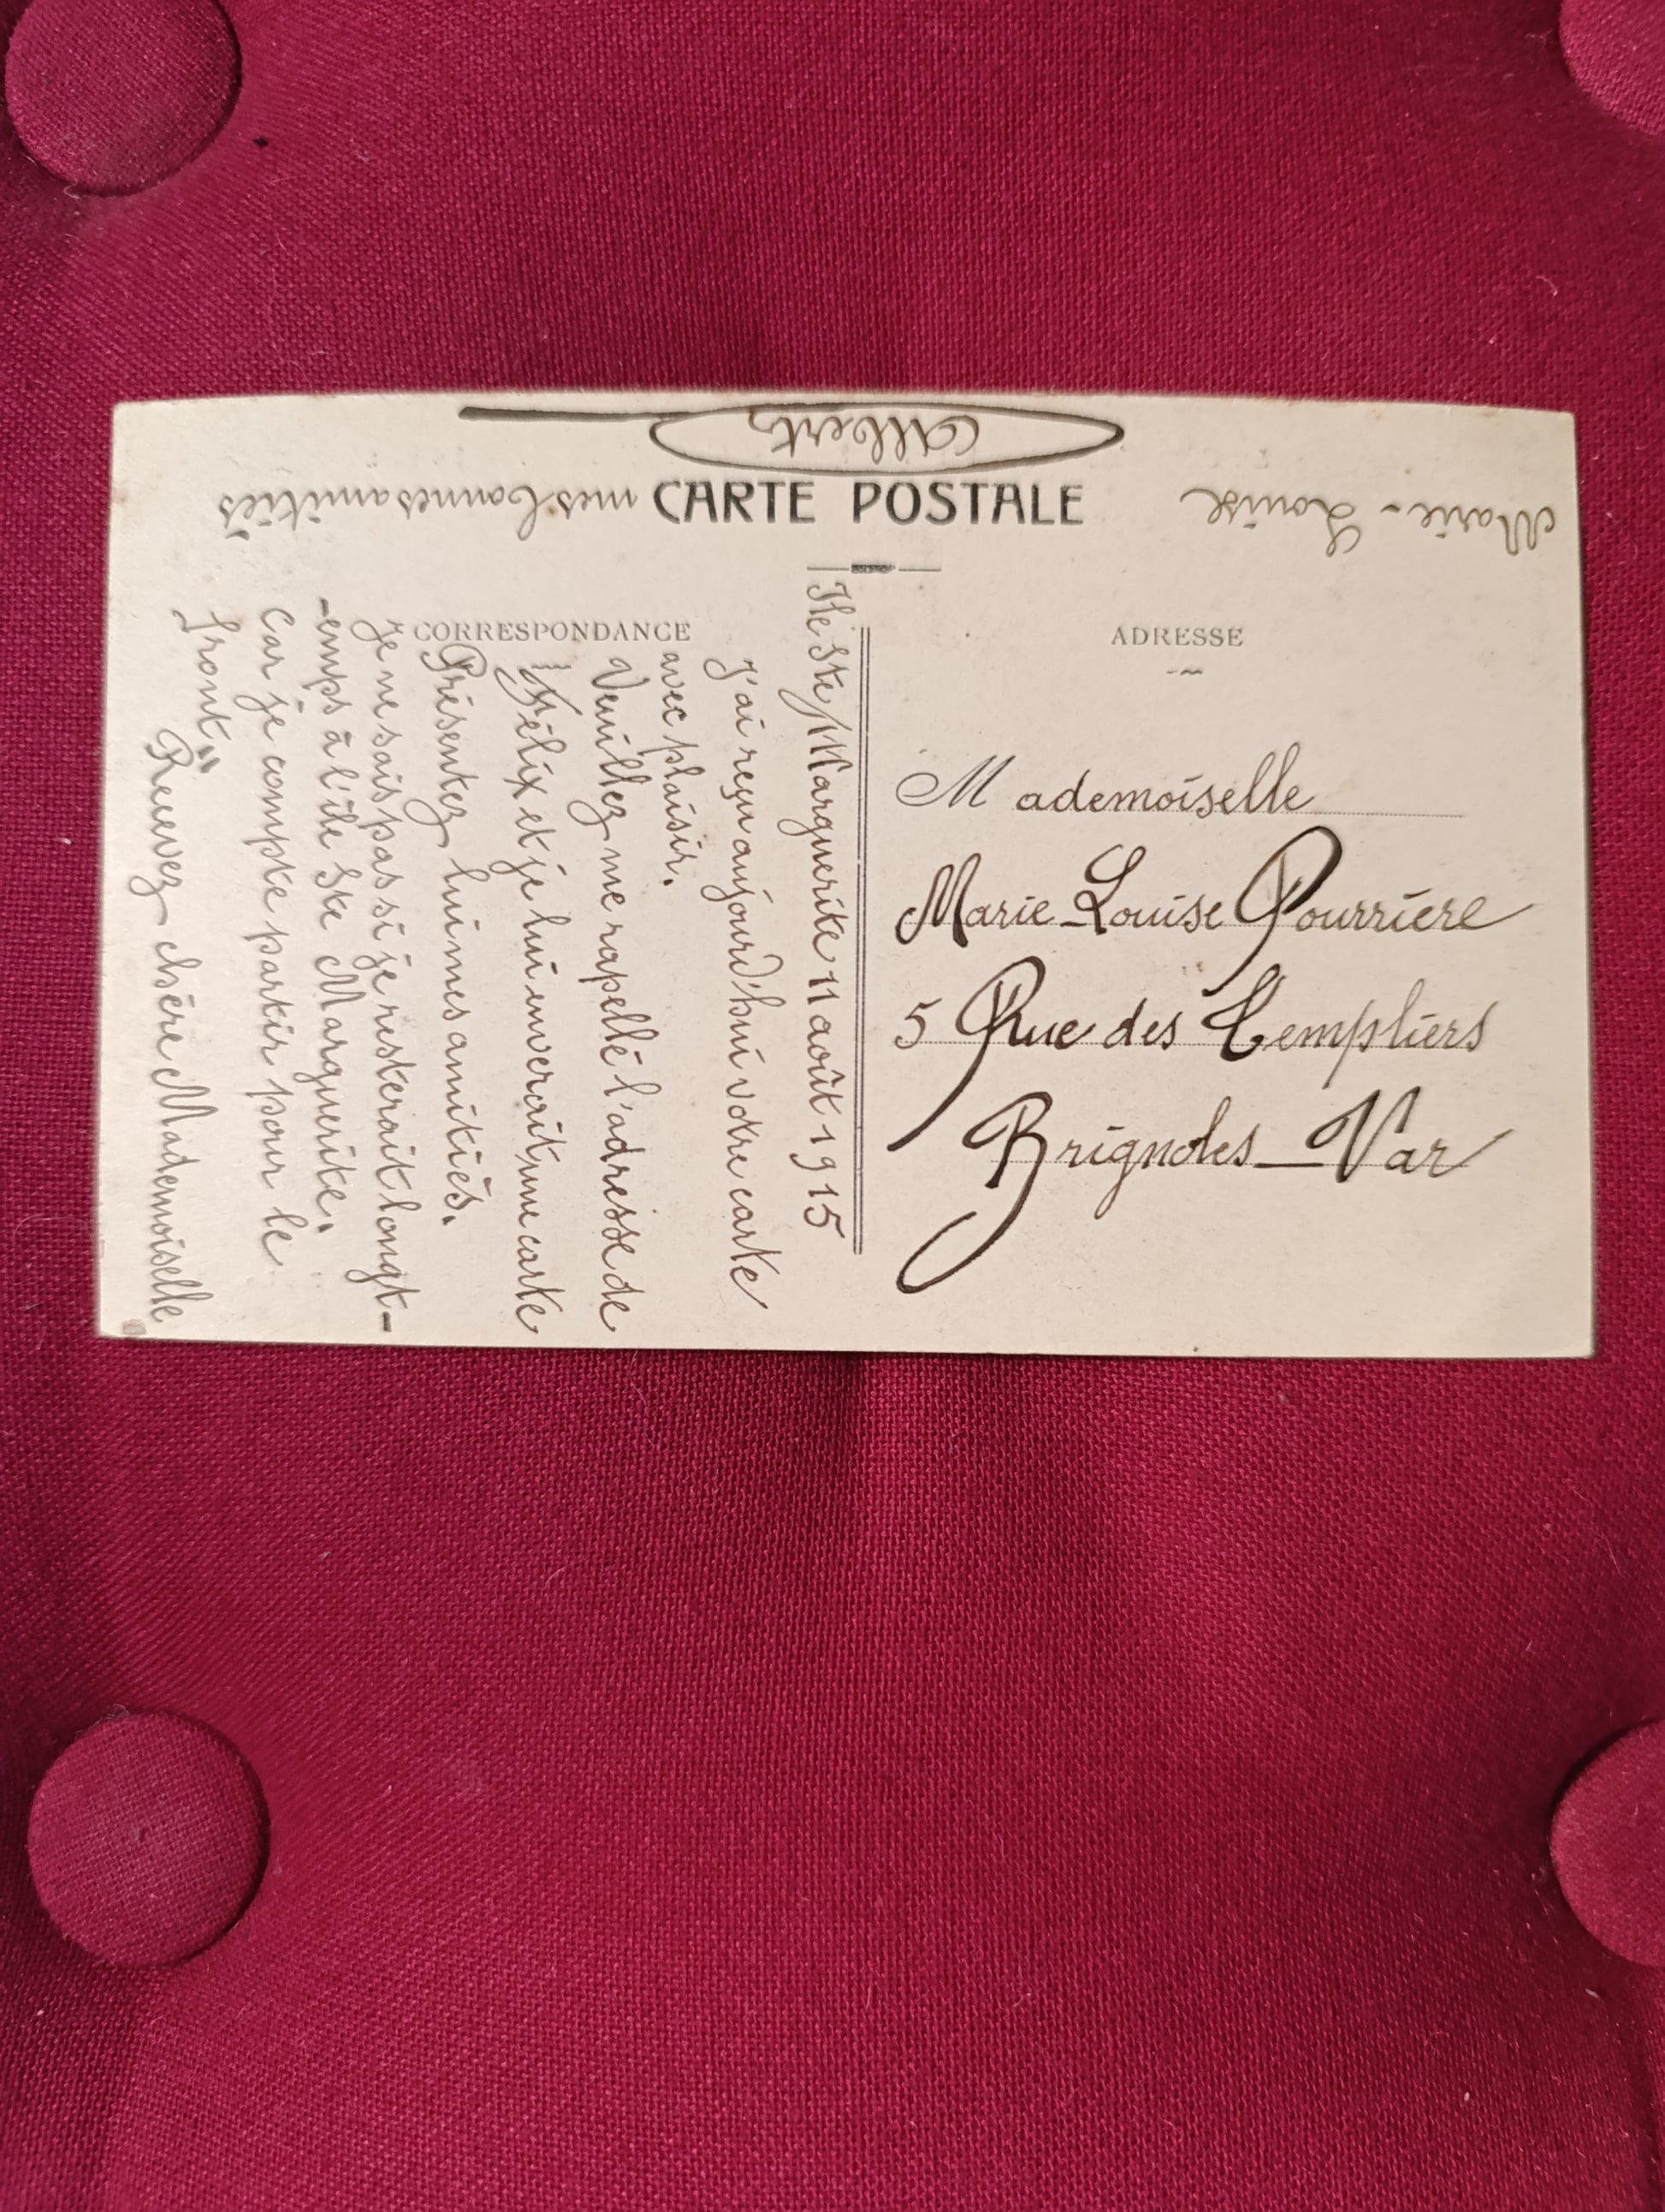 CARTE POSTALE
CORRESPONDANCE
ADRESSE
Mademoiselle
Marie-Louise Pourrière
5 Rue des Templiers
Brignoles _ Var
Ile Ste Marguerite 11 août 1915
J'ai reçu aujourd'hui votre carte
avec plaisir.
Veuillez me rapellé l'adresse de
Félix et je lui enverrait une carte
Présentez lui mes amitiés.
Je ne sais pas si je resterait longt-
-emps à l'île Ste Marguerite.
Car je compte partir pour le
front"
Recevez chère Mademoiselle
Marie-Louise mes bonnes amitiés
Albert